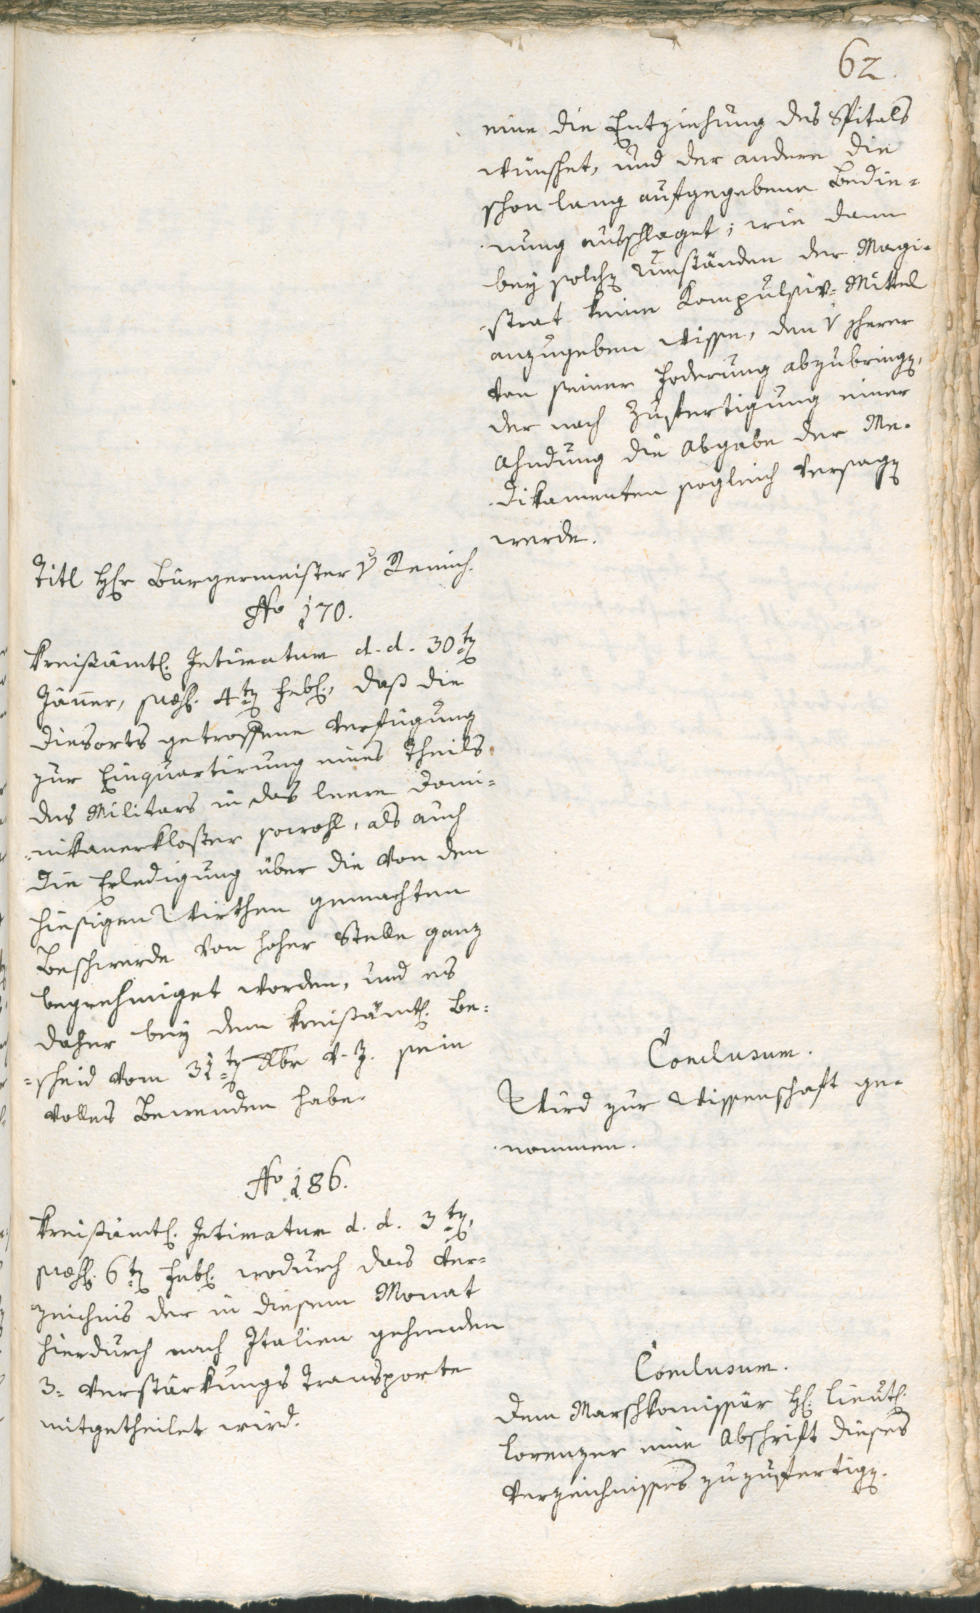 62.
eine die Entziehung des Spitals
wünschet, und der andere die
schon lang aufgegebene Bedie-
nung ausschlaget; wie dann
bey solchen Umständen der Magi-
strat keine Kompulsiv-Mittel
anzugeben wisse, den
von seiner Foderung abzubringen,
der nach Zufertigung einer
Ahndung die Abgabe der Me-
dikamenten sogleich versagen
werde.
Titl Herr Bürgermeister v Remich.
No 170.
Kreisämtl. Intimatum d. d. 30ten
Jänner, præs. 4ten Febl., daß die
diesorts getroffene Verfügung
zur Einquartirung eines Theils
des Militars in das leere Domi-
nikanerkloster sowohl, als auch
die Erledigung über die von den
hiesigen Wirthen gemachten
Beschwerde von hoher Stelle ganz
begnehmiget worden, und es
daher bey dem kreisämtl. Be-
scheid vom 31ten Xbr v. J. sein
volles Bewenden habe.
Conclusum.
Wird zur Wissenschaft ge-
nommen.
No 186.
Kreisämtl. Intimatum d. d. 3ten,
præs. 6ten Febl. wodurch das Ver-
zeichnis der in diesem Monat
hierdurch nach Italien gehenden
3. Verstärkungs Transporte
mitgetheilet wird.
Conclusum.
Dem Marschkomissär H. Lieut.
Lorenzer eine Abschrift dieses
Verzeichnisses zuzufertigen.